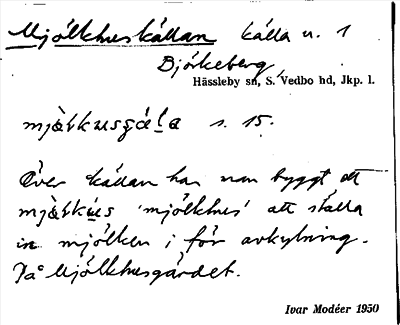 Mjölkhuskällan källa u. 1
Björkeberg,
Hässleby sn, S. Vedbo hd, Jkp. l.
s. 15.
Över källan har man byggt ett
'mjölkhus' att ställa
in mjölken i för avkylning.
På Mjölkhusgärdet.
Ivar Modéer 1950